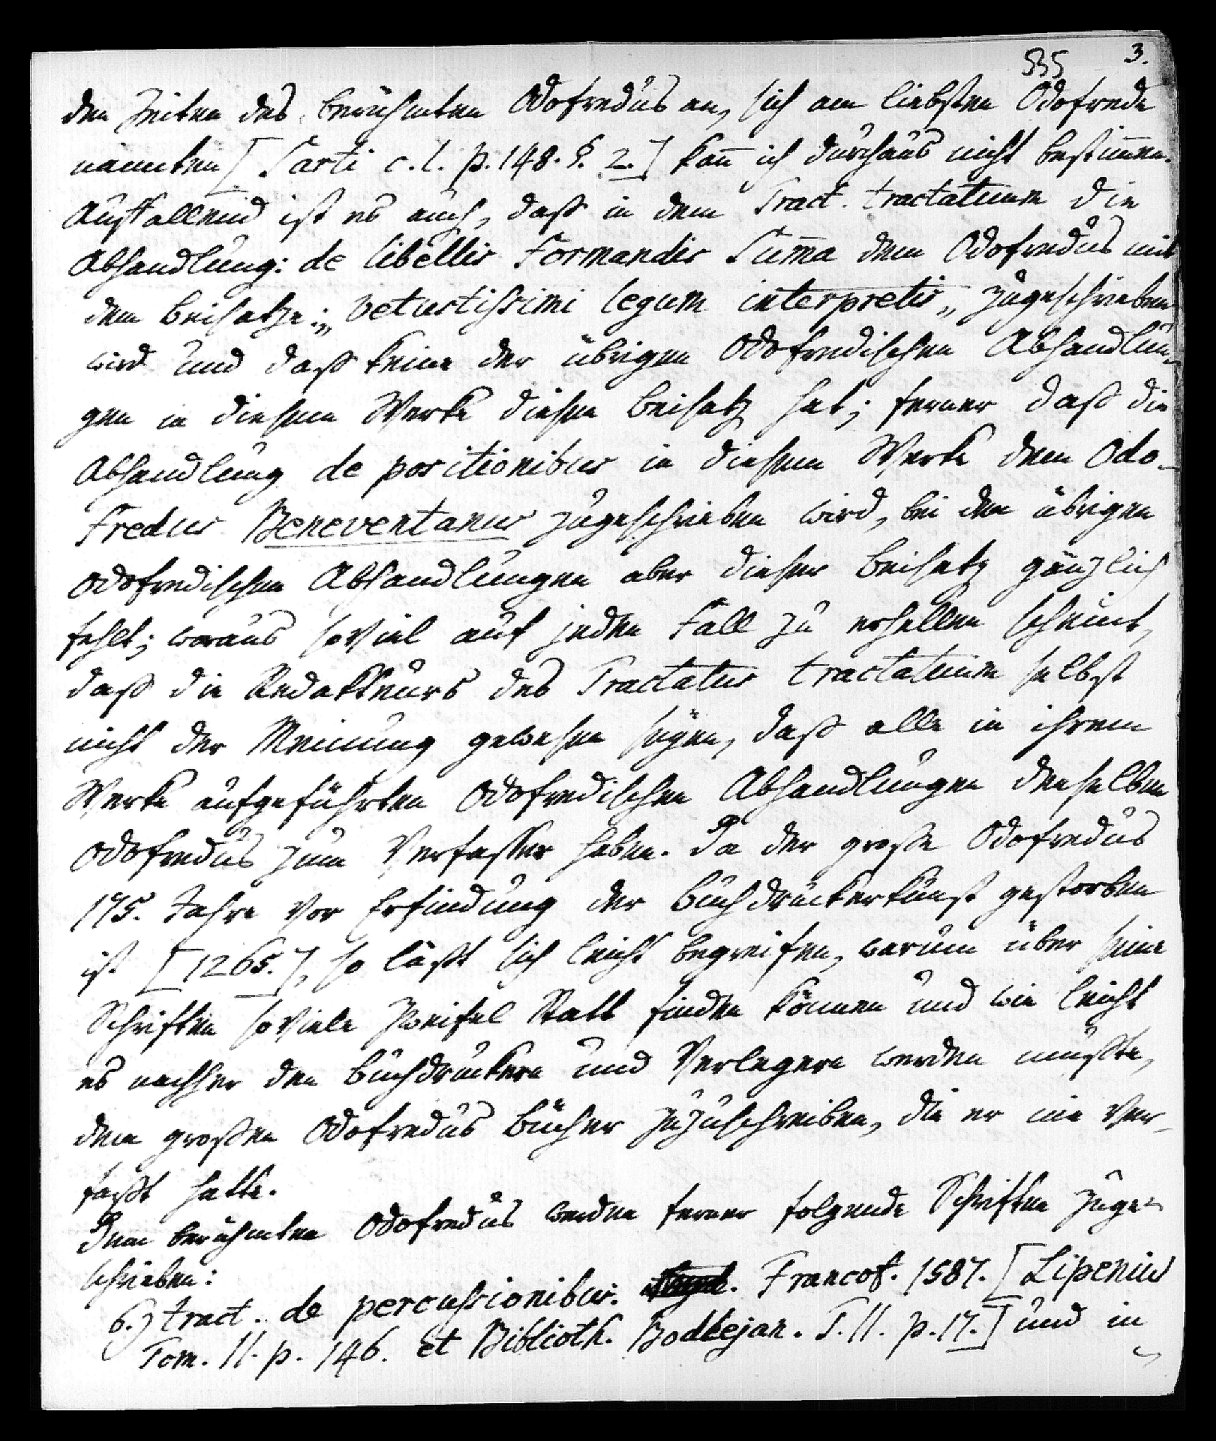 535 3.
den Zeiten des berühmten Odofredus an, sich am liebsten Odofrede
nannten [Sarti c. l. p. 148. §. 2.] kan̄ ich durchaus nicht bestim̄en.
Auffallend ist es auch, daß in dem Tract. tractatuum die
Abhandlung: de libellis Formandis Sum̄a dem Odofredus mit
dem Beisatze: „vetustissimi legum interpretis„ zugeschrieben
wird und daß keine der übrigen Odofredischen Abhandlun-
gen in diesem Werke diesen Beisatz hat; ferner daß die
Abhandlung de positionibus in diesem Werke dem Odo-
Fredus Beneventanus zugeschrieben wird, bei den übrigen
Odofredischen Abhandlungen aber dieser Beisatz gänzlich
fehlt; woraus soviel auf jeden Fall zu erhellen scheint,
daß die Redakteurs des Tractatus tractatuum selbst
nicht der Meinung gewesen seyen, daß alle in ihrem
Werke aufgeführten Odofredischen Abhandlungen denselben
Odofredus zum Verfasser haben. Da der große Odofredus
175. Jahre vor Erfindung der Buchdruckerkunst gestorben
ist [1265.], so läßt sich leicht begreifen, warum über seine
Schriften soviele Zweifel Statt finden können und wie leicht
es nachher den Buchdruckern und Verlegern werden mußte,
dem großen Odofredus Bücher zuzuschreiben, die er nie ver-
faßt hatte.
Dem berühmten Odofredus werden ferner folgende Schriften zuge-
schrieben:
6.) tract. de percussionibus. Francof. 1587. [Lipenius
Tom. II. p. 146. et Biblioth. Bodlejan. T. II. p. 17.] und in